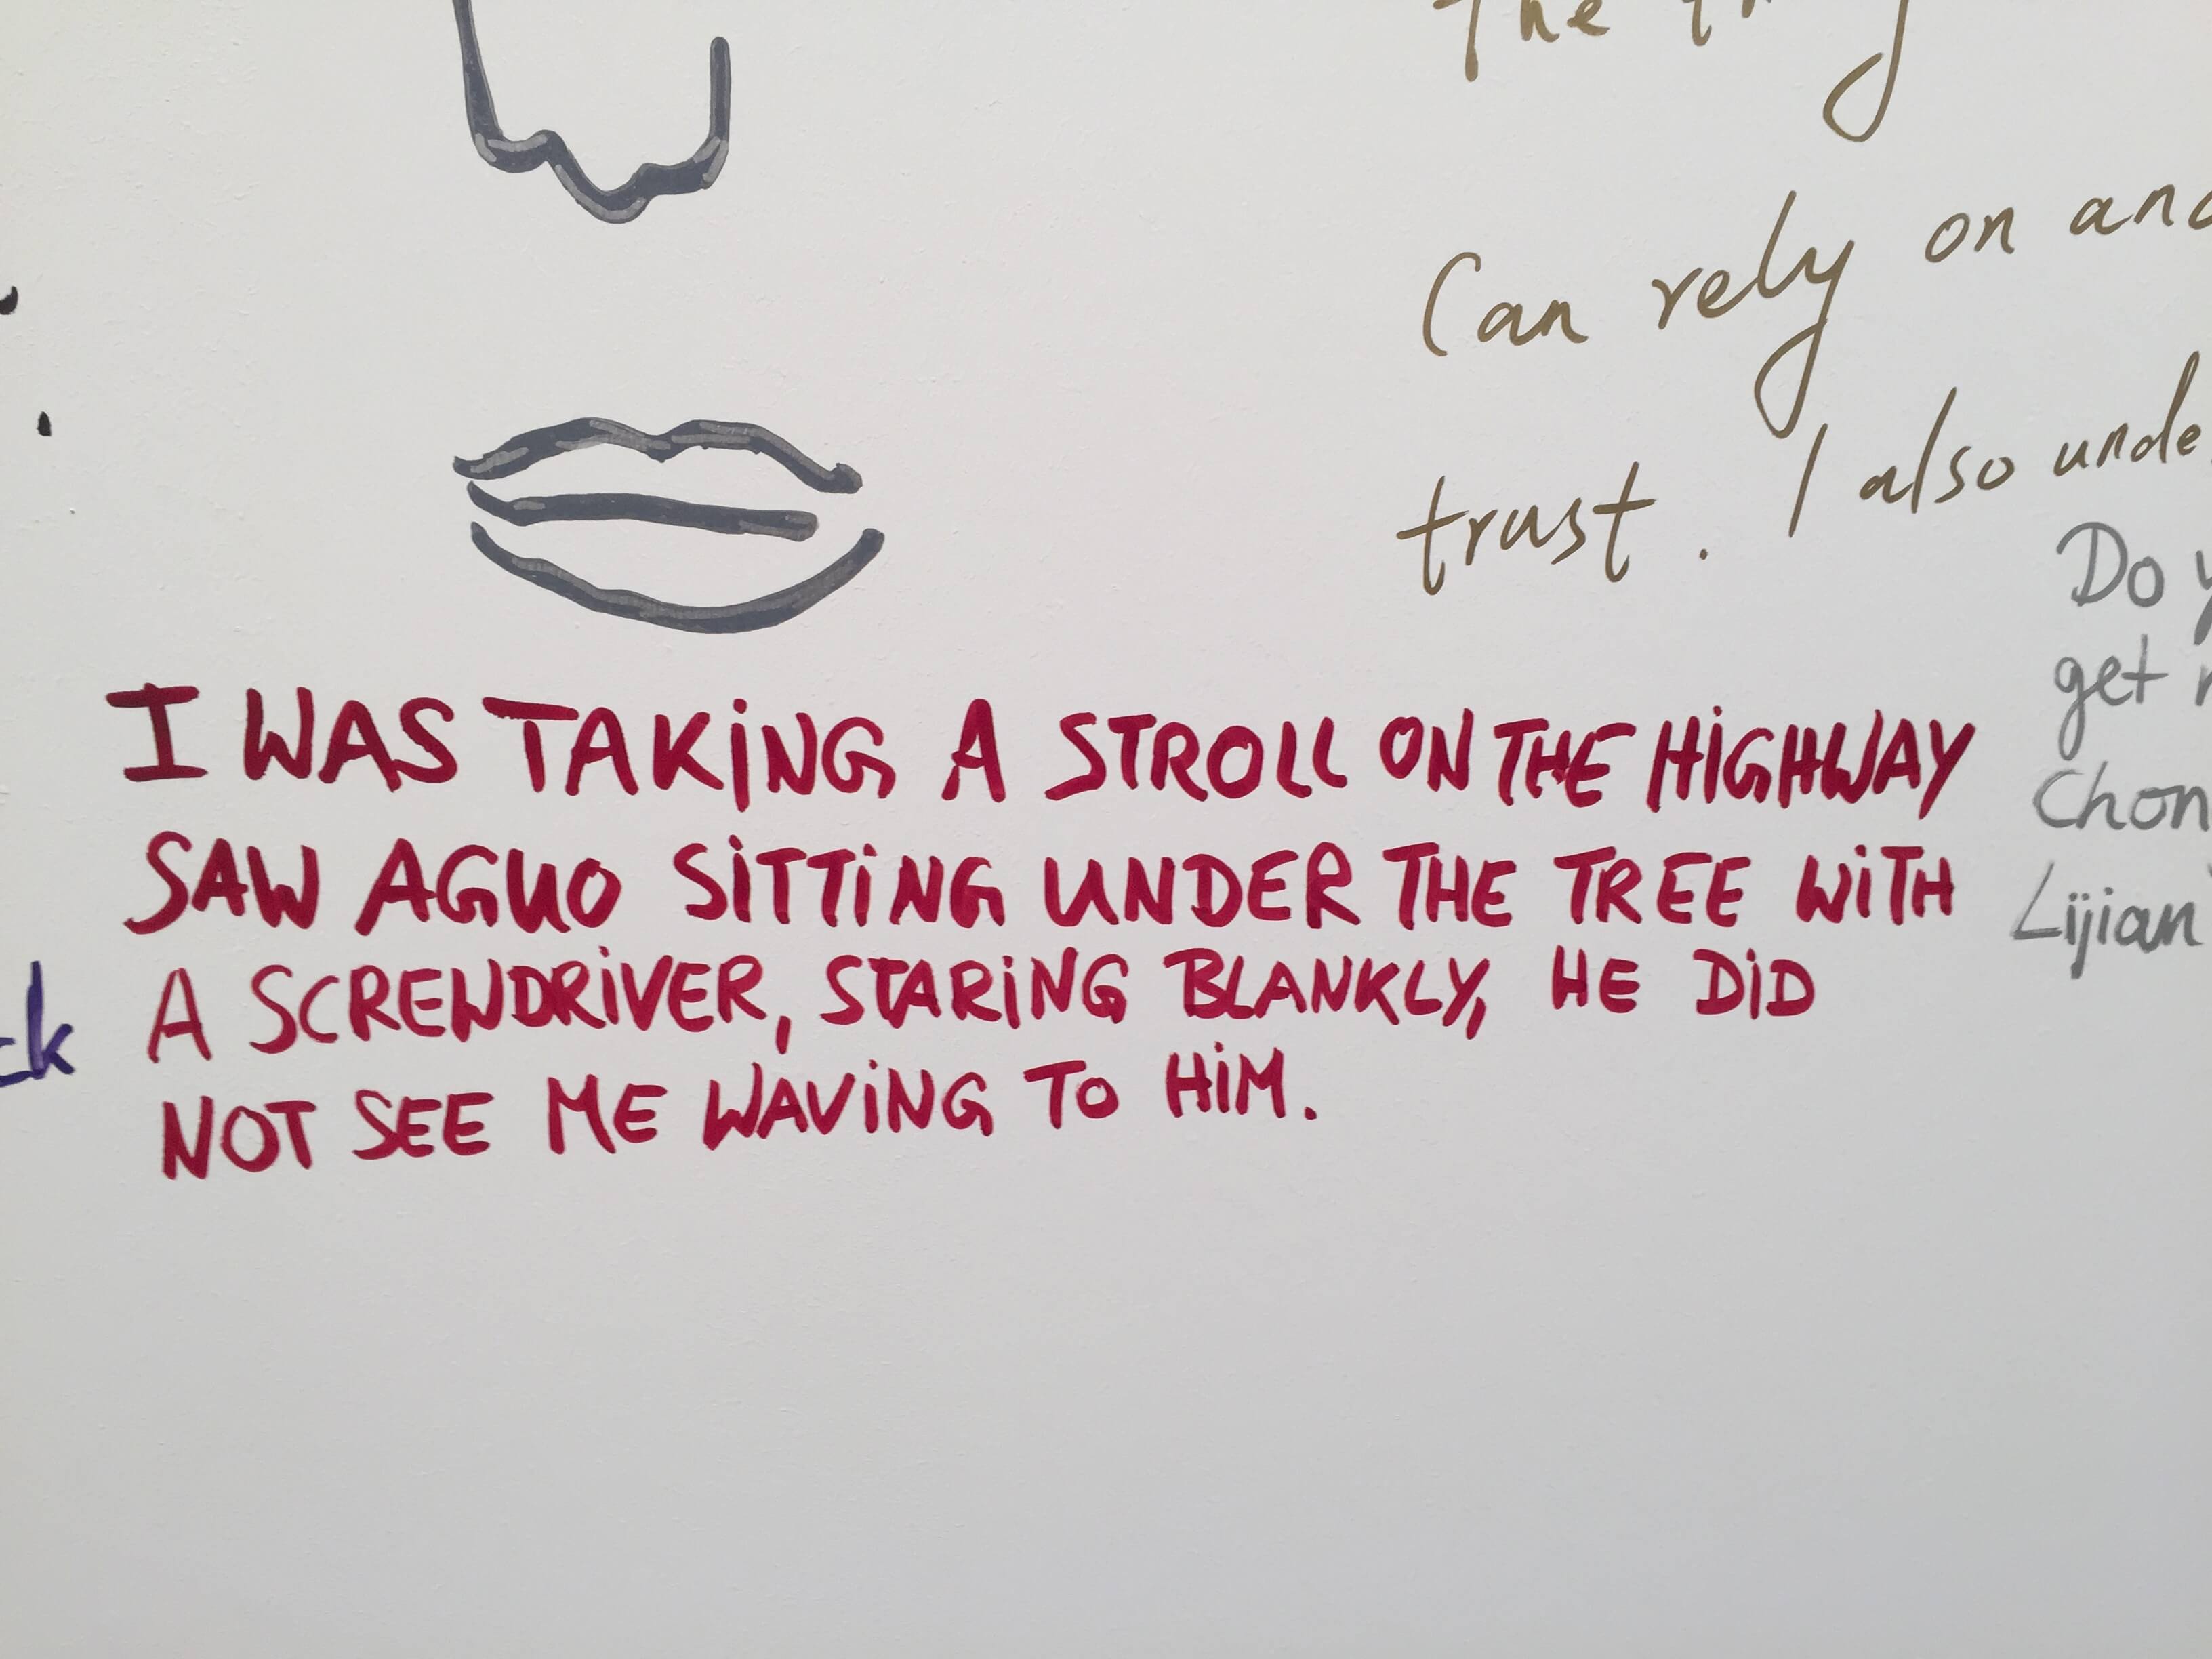 The
Can rely on and
trust. I also unde
Do y
get r
Chon
Lijian
ck
I WAS TAKiNG A STROLL ON THE HiGHWAY
SAW AGUO SiTTiNG UNDER THE TREE WiTH
A SCREWDRiVER, STARiNG BLANKLY, HE DiD
NOT SEE ME WAViNG TO HiM.